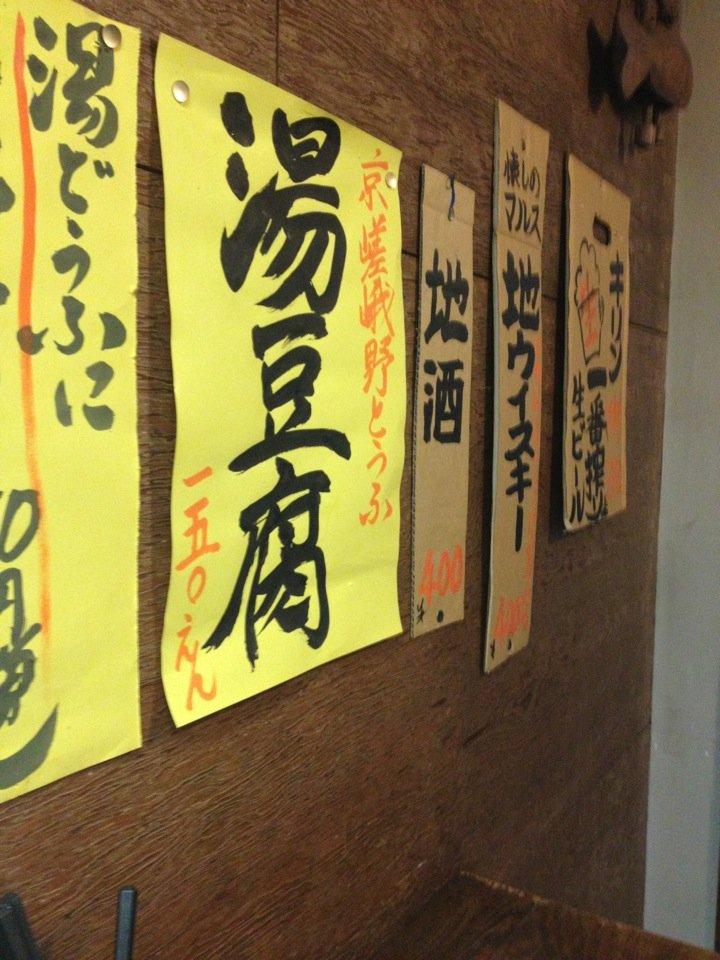 湯どうふに
京嵯峨野とうふ
湯豆腐
一五〇えん
地酒
400
懐しの
マルス
地ウイスキー
キリン
生
一番搾り
生ビール